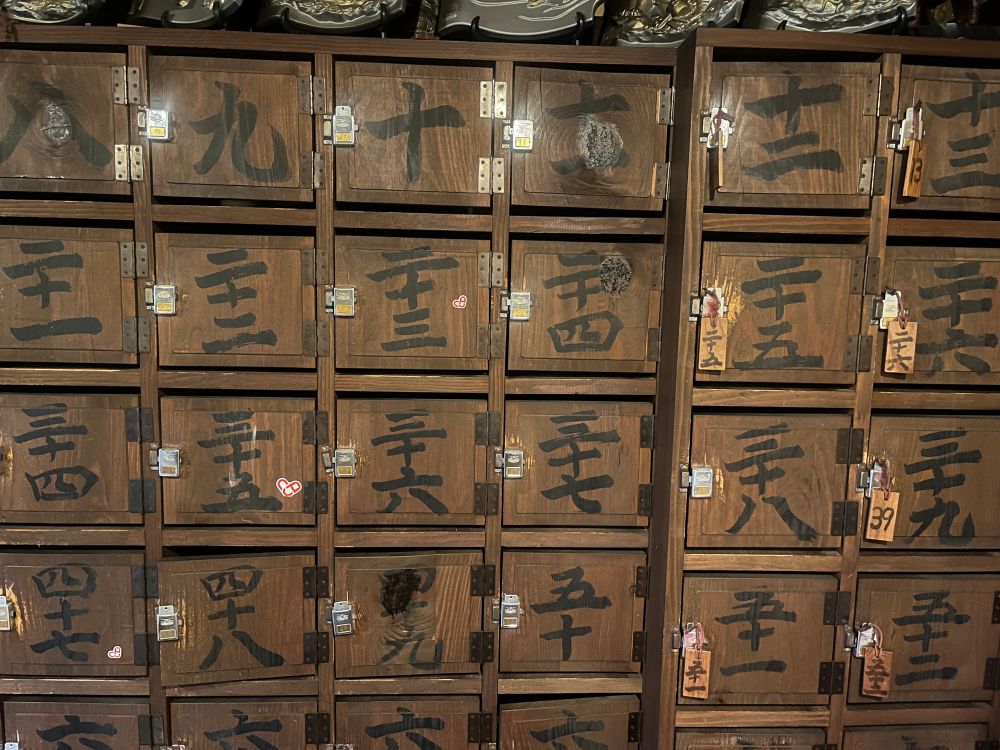 八
九
十
十一
十二
十三
13
二十一
二十二
二十三
二十四
二十五
二十五
二十六
二十六
三十四
三十五
三十六
三十七
三十八
三十九
39
四十七
四十八
四十九
五十
五十一
五十一
五十二
五十二
六
六
六
六